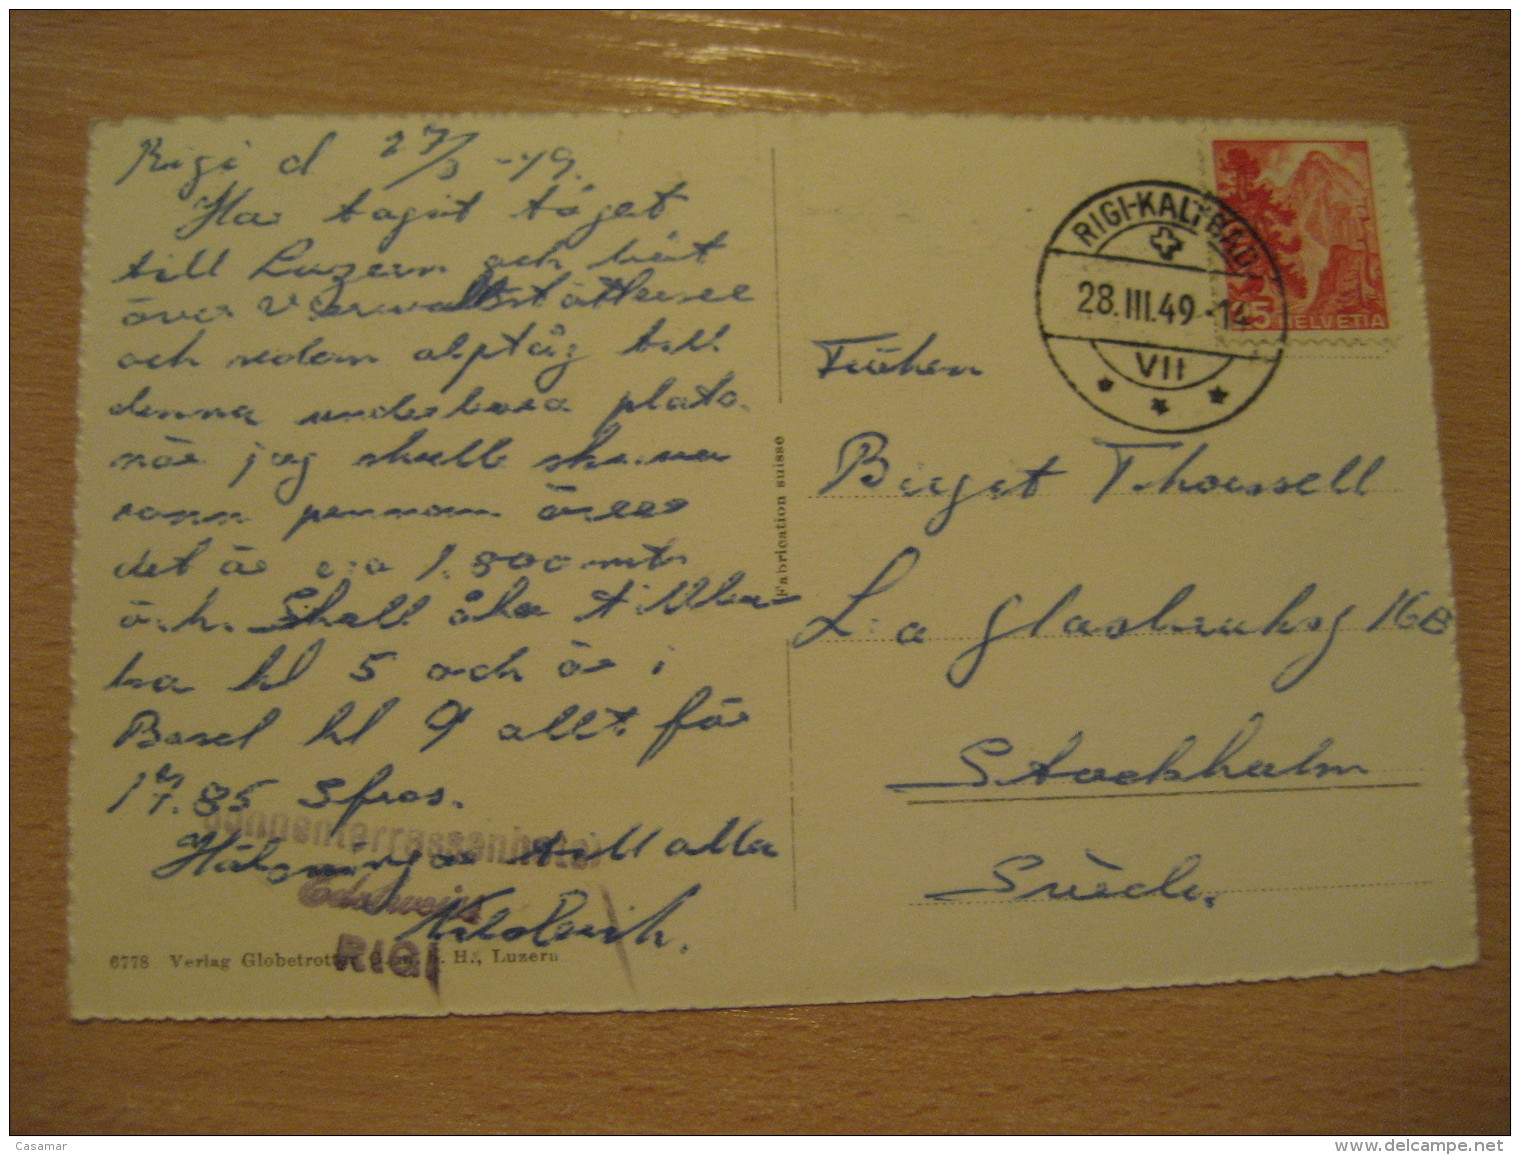 Rigi d 27/3 -49.
Har tagit tåget
till Luzern och båt
över Vierwaldstättersee
och sedan alptåg till
denna underbara plato.
när jag skall skriva
som pennan
det är c:a 1.800 mtr
ö.h. Skall åka tillba-
ka kl 5 och är i
Basel kl 9 allt för
17.85 Sfrcs.
Hälsningar till alla
Sonnenterrassenhotel
Edelweiss
RIGI
6778 Verlag Globetrotter G.m.b.H., Luzern
Fabrication suisse
RIGI-KALTBAD
28.III.49-14
VII
25 HELVETIA
Fröken
Birgit Thorssell
L:a 16B
Stockholm
Suède.
Casamar
www.delcampe.net